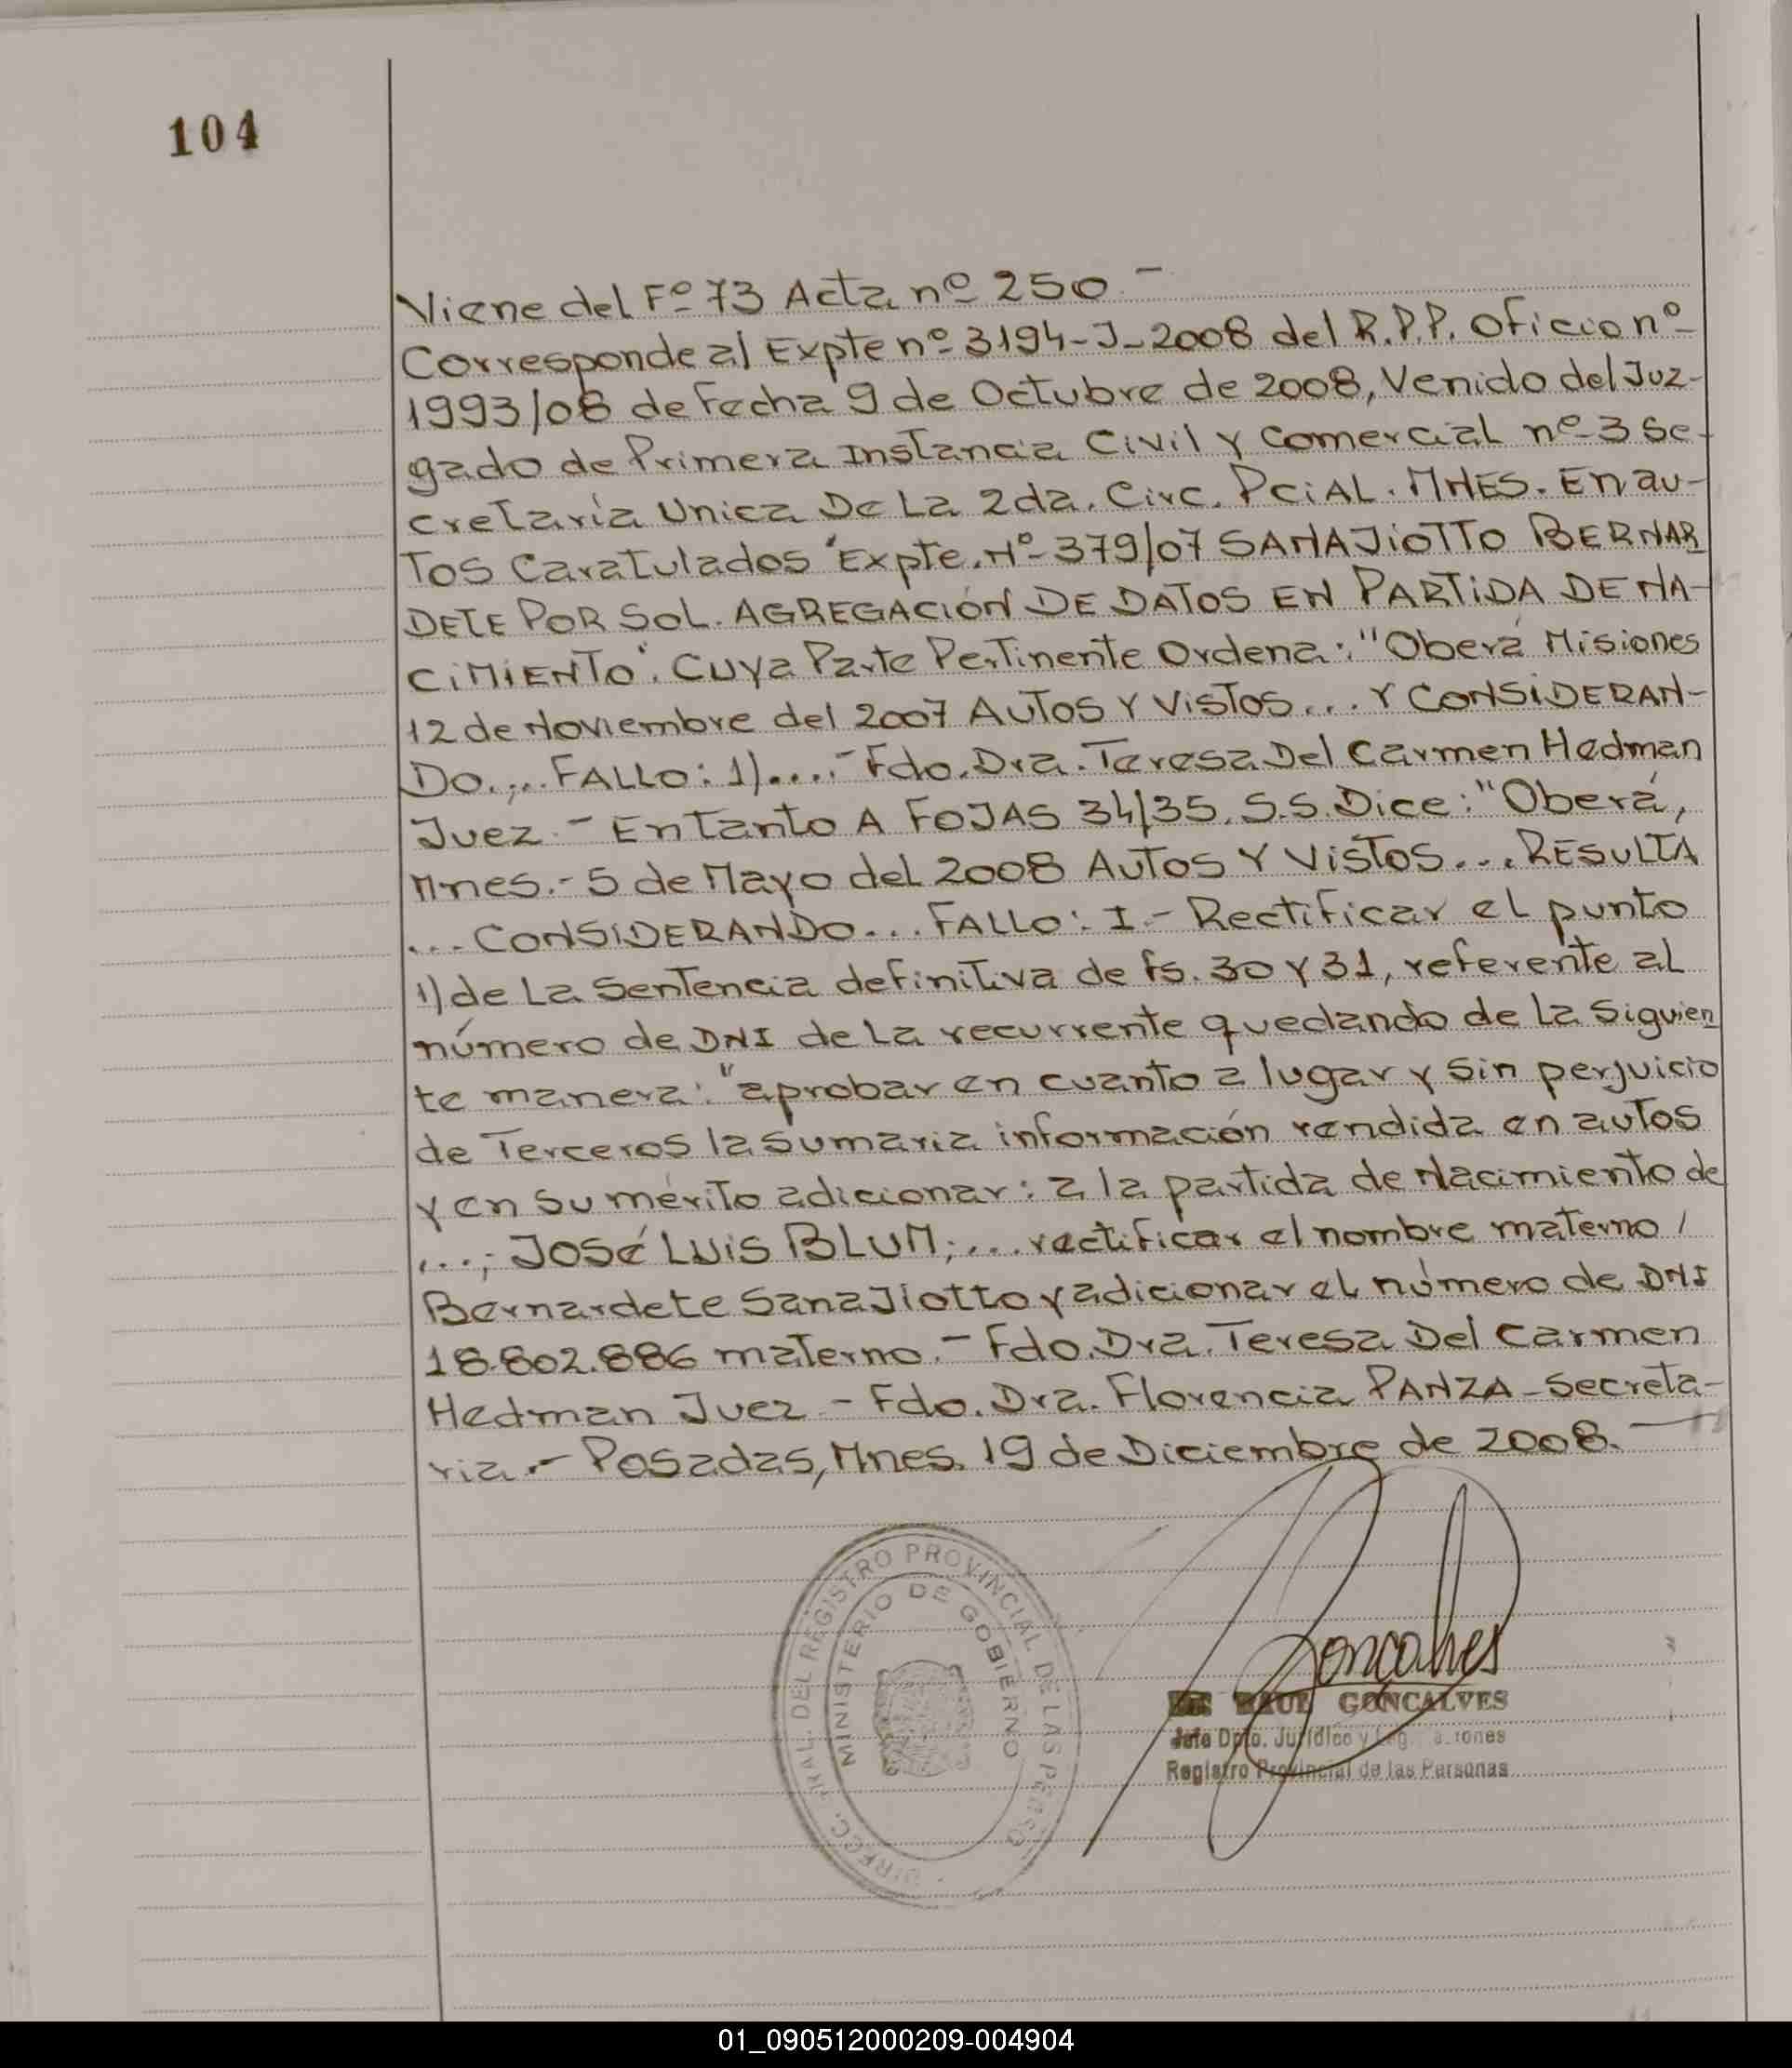 104
Viene del Fº 73 Acta nº 250 –
Corresponde al Expte nº 3194-J-2008 del R.P.P. oficio nº
1993/08 de fecha 9 de Octubre de 2008, Venido del Juz-
gado de Primera Instancia Civil y Comercial nº 3 Se-
cretaría Unica De La 2da. Circ. PCiAL. MNES. En au-
tos Caratulados "Expte. Nº 379/07 SANAJiOTTO BERNAR
DETE POR SOL. AGREGACIÓN DE DATOS EN PARTiDA DE NA-
CiMiENTO". Cuya Parte Pertinente Ordena: "Oberá Misiones
12 de Noviembre del 2007 AUTOS Y ViSTOS... Y CONSiDERAN-
DO.... FALLO: 1)....- Fdo. Dra. Teresa Del Carmen Hedman
Juez.- En Tanto A FOJAS 34/35. S.S. Dice: "Oberá,
Mnes.- 5 de Mayo del 2008 AUTOS Y ViSTOS.... RESULTA
... CONSiDERANDO... FALLO: I.- Rectificar el punto
1) de La Sentencia definitiva de fs. 30 y 31, referente al
número de DNI de la recurrente quedando de la siguien
te manera: "aprobar en cuanto a lugar y sin perjuicio
de Terceros la sumaria información rendida en autos
y en su mérito adicionar: a la partida de Nacimiento de
...; JOSÉ LUIS BLUM;... rectificar el nombre materno /
Bernardete SanaJiotto y adicionar el número de DNI
18.802.886 materno.- Fdo. Dra. Teresa Del Carmen
Hedman Juez - Fdo. Dra. Florencia PANZA - Secreta-
ria.- Posadas, Mnes. 19 de Diciembre de 2008.-
DIRECC. GRAL. DEL REGISTRO PROVINCIAL DE LAS PERSO
MINISTERIO DE GOBIERNO
Goncalves
RAUL GONCALVES
Jefe Dpto. Jurídico y
Registro Provincial de las Personas
01_090512000209-004904